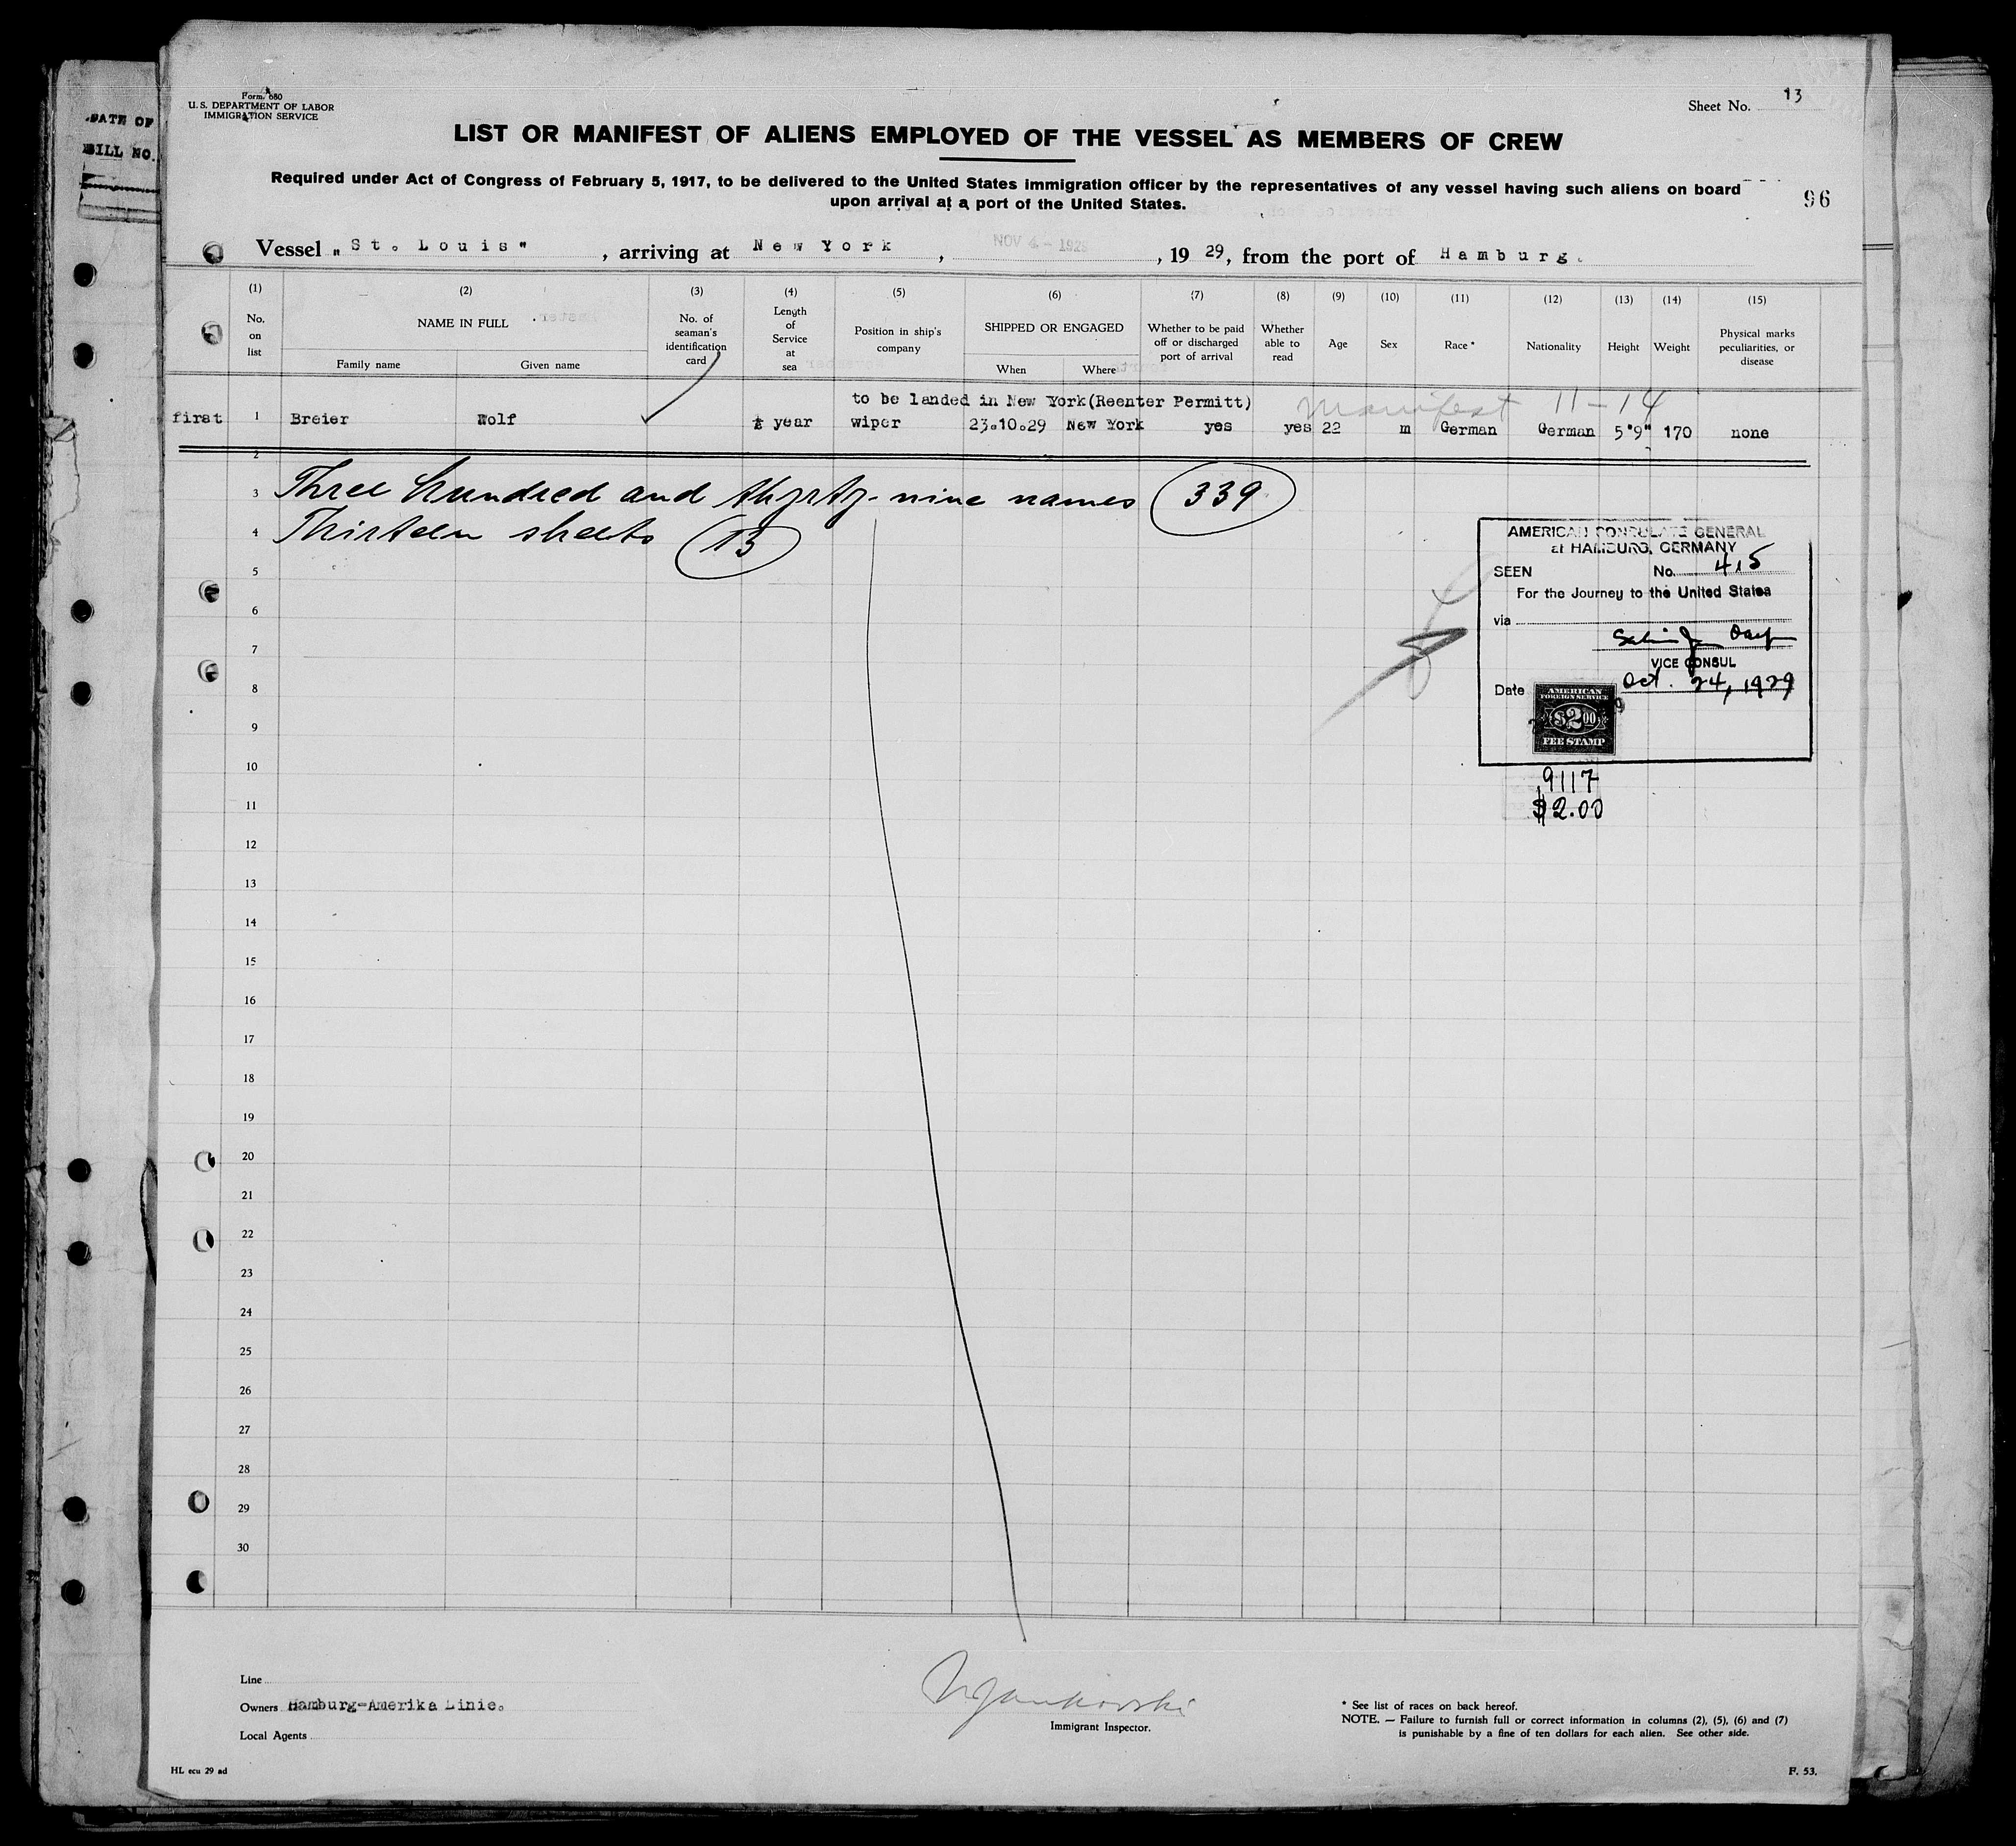 DATE OF
BILL NO.
Form 680
U. S. DEPARTMENT OF LABOR
IMMIGRATION SERVICE
Sheet No. 13
LIST OR MANIFEST OF ALIENS EMPLOYED OF THE VESSEL AS MEMBERS OF CREW
Required under Act of Congress of February 5, 1917, to be delivered to the United States immigration officer by the representatives of any vessel having such aliens on board
upon arrival at a port of the United States.
96
Vessel „St. Louis", arriving at New York, NOV 4 - 1929, 1929, from the port of Hamburg.
(1) (2) (3) (4) (5) (6) (7) (8) (9) (10) (11) (12) (13) (14) (15)
No. on list
NAME IN FULL
Family name Given name
No. of seaman's identification card
Length of Service at sea
Position in ship's company
SHIPPED OR ENGAGED
When Where
Whether to be paid off or discharged port of arrival
Whether able to read
Age
Sex
Race *
Nationality
Height
Weight
Physical marks peculiarities, or disease
to be landed in New York(Reenter Permitt) Manifest 11-14
first 1 Breier Wolf ½ year wiper 23.10.29 New York yes yes 22 m German German 5'9" 170 none
2
3 Three hundred and thyrty-nine names 339
4 Thirteen sheets 13
5
6
7
8
9
10
11
12
13
14
15
16
17
18
19
20
21
22
23
24
25
26
27
28
29
30
AMERICAN CONSULATE GENERAL
at HAMBURG, GERMANY
SEEN No. 415
For the Journey to the United States
via
VICE CONSUL
Date Oct. 24, 1929
AMERICAN
FOREIGN SERVICE
$2.00
FEE STAMP
9117
$2.00
Line
Owners Hamburg-Amerika Linie.
Local Agents
Immigrant Inspector.
* See list of races on back hereof.
NOTE. — Failure to furnish full or correct information in columns (2), (5), (6) and (7)
is punishable by a fine of ten dollars for each alien. See other side.
HL ecu 29 ad
F. 53.